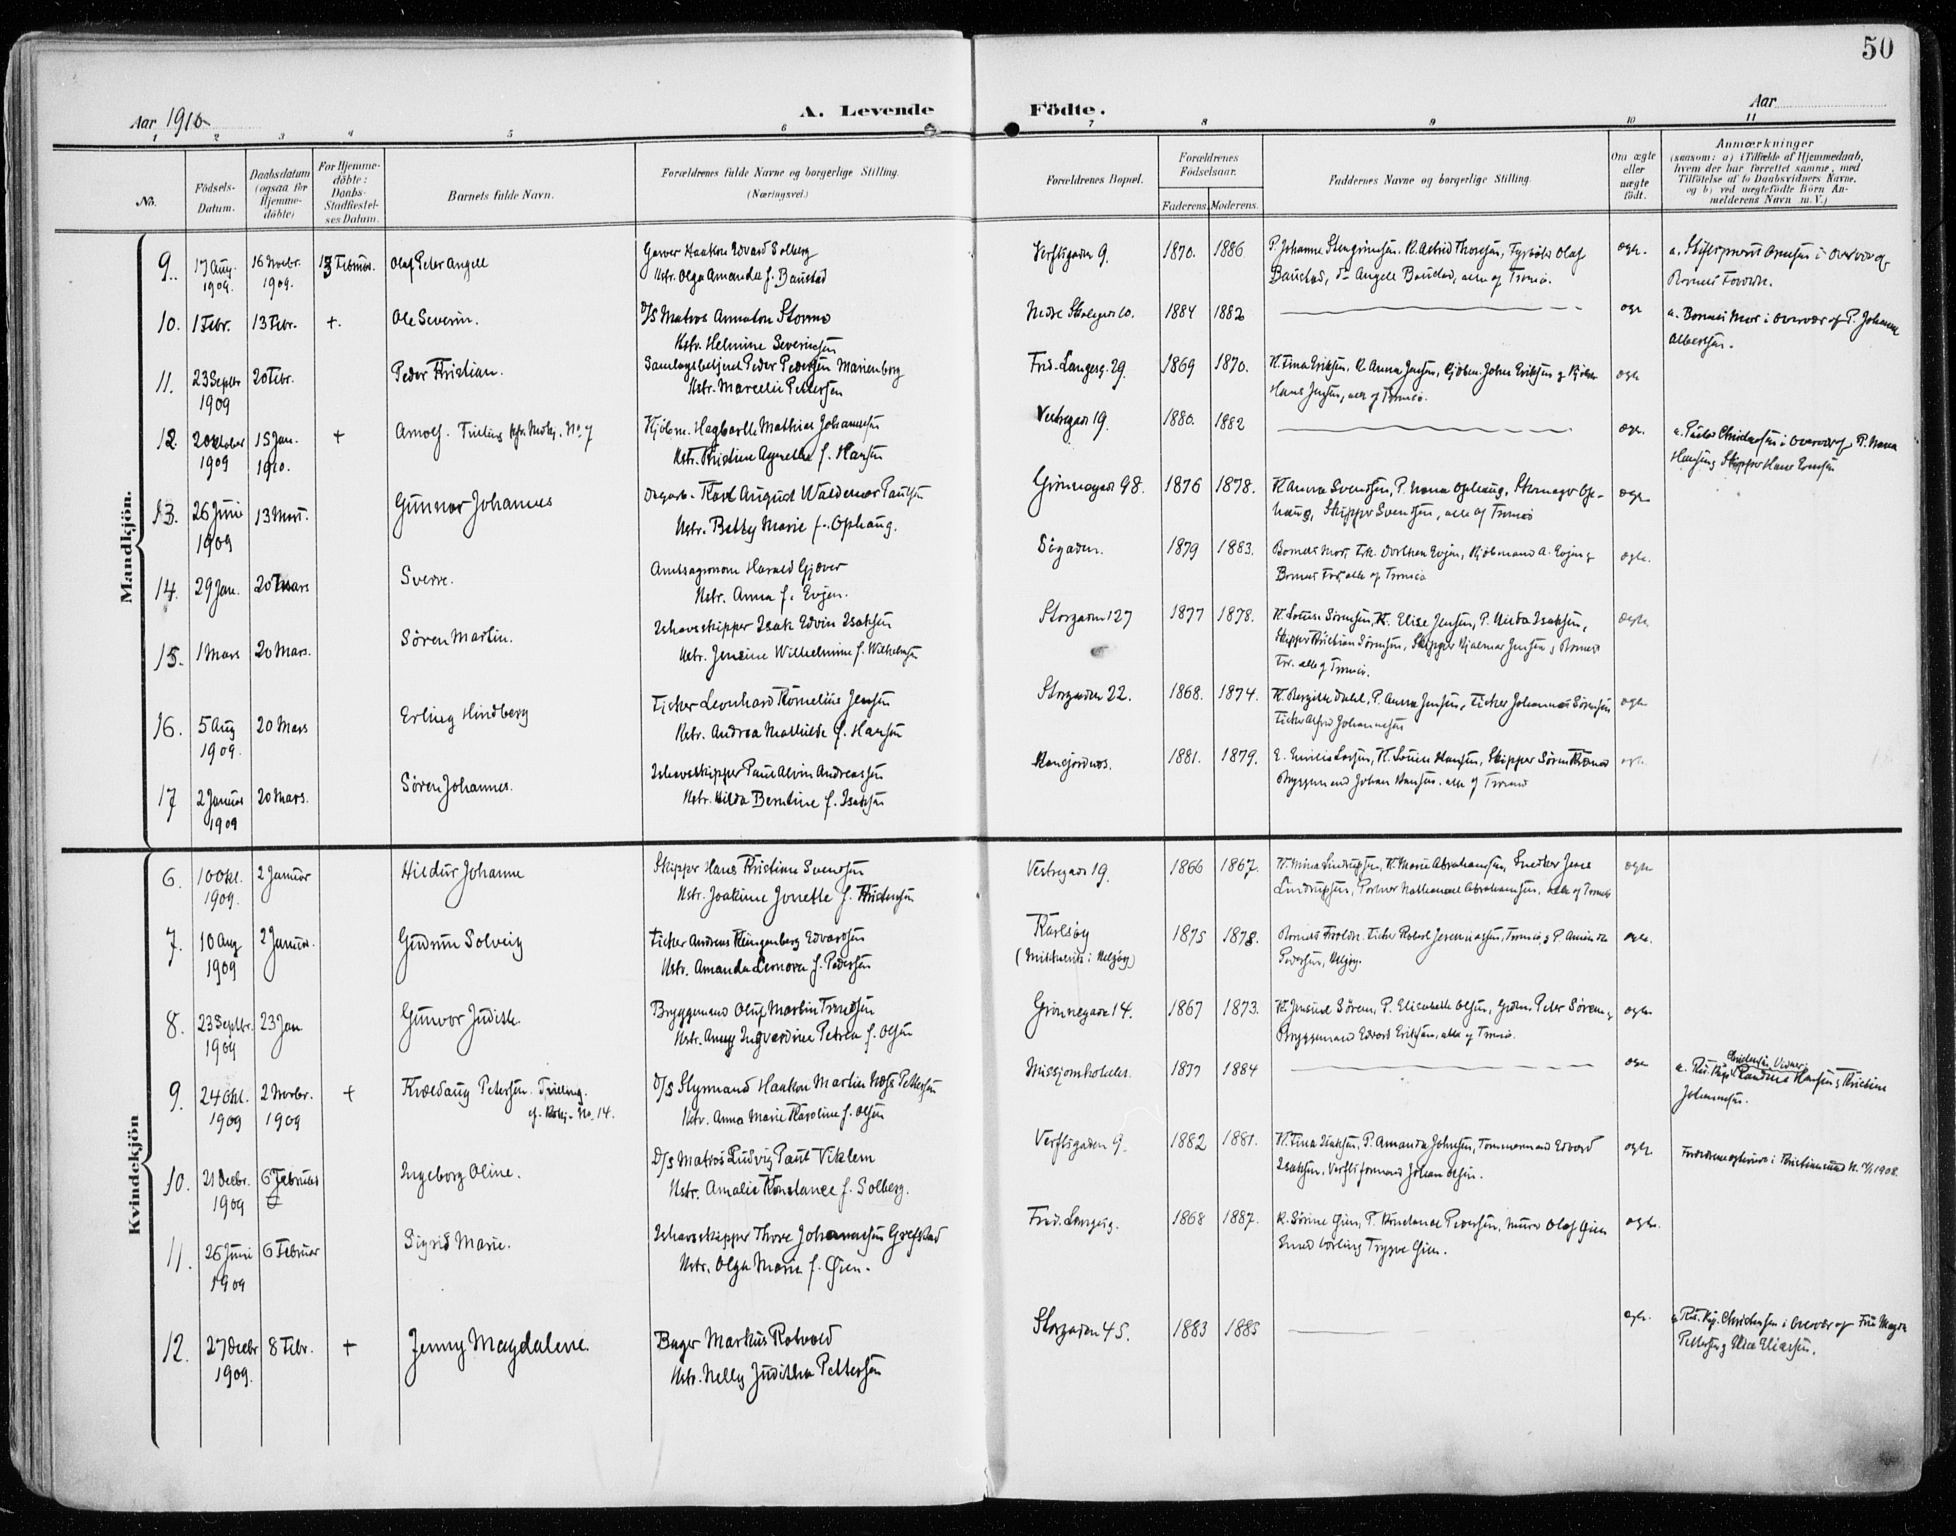 50
Aar 1910
A. Levende
Födte.
Aar
1 2 3 4 5 6 7 8 9 10 11
No.
Födsels-
Datum.
Daabsdatum
(ogsaa for
Hjemme-
döbte)
For Hjemme-
döbte:
Daabs-
Stadfæstel-
ses Datum.
Barnets fulde Navn.
Forældrenes fulde Navne og borgerlige Stilling.
(Næringsvei.)
Forældrenes Bopæl.
Forældrenes
Födselsaar.
Faderens. Moderens.
Faddernes Navne og borgerlige Stilling.
Om ægte
eller
uægte
födt.
Anmærkninger
(saasom: a) i Tilfælde af Hjemmedaab,
hvem der har forrettet samme, med
Tilföielse af to Daabsvidners Navne,
og b) ved uægtefödte Börn An-
melderens Navn m. V.)
Mandkjön.
9. 17 Aug. 1909. 16 Novbr. 1909. 13 Februar. Olaf Peter Angell
Garver Haakon Edvard Solberg
Hstr. Olga Amanda f. Baustad
Verftsgaden 9. 1870. 1886
P. Johanne Stengrimsen. K. Astrid Thoresen, Fyrböter Olaf
Baustad, do Angell Baustad, alle af Tromsö.
ægte.
a. Stiftsprovst i Overvær af
Barnets Forældre.
10. 1 Febr. 13 Febr. +. Ole Severin.
D/S Matros Annaton Stormo
Hstr. Helmine Severinsen
Nedre Skolegad 10. 1884 1882
ægte
a. Barnets Mor i Overvær af P. Johanne
Albertsen.
11. 23 Septbr 1909 20 Febr. Peder Kristian.
Samlagsbetjent Peder Pedersen Marienborg
Hstr. Marcelie Pettersen
Fred. Langesg. 29. 1869 1870.
K. Tina Eriksen, K. Anna Jensen, Kjöbm. Johs Eriksen og Kjöbm
Hans Jensen, alle af Tromsö.
ægte
12. 2 Oktober 1909 15 Jan. 1910. + Arnolf. Tvilling No. 7
Kjöbm. Hagbarth Mathias Johannesen
Hstr. Kristine Agnethe f. Hansen
Vestregad 19. 1880. 1882
ægte.
a. Pastor Christensen i Overvær af P. Nanna
Hansen og Skipper Hans Evensen
13. 26 Juni 1909 13 Mars. Gunnar Johannes
Dagarb. Karl August Waldemar Paulsen
Hstr. Betsy Marie f. Ophaug.
Grönnegad 98. 1876 1878.
K. Anna Svendsen, P. Nanna Ophaug, Skomager Op-
haug, Skipper Svendsen, alle af Tromsö
ægte
14. 29 Jan. 20 Mars Sverre.
Amtsagronom Harald Gjæver
Hstr. Anna f. Evjen.
Sögaden. 1879 1883.
Barnets Mor, Frk. Dorthea Evjen, Kjöbmand A. Evjen og
Barnets Far, alle af Tromsö
ægte.
15. 1 Mars 20 Mars. Sören Martin.
Ishavsskipper Isak Edvin Isaksen
Hstr. Jensine Wilhelmine f. Wilhelmsen
Storgaden 127 1877 1878.
K. Louise Sörensen, K. Elise Jensen, P. Hilda Isaksen,
Skipper Kristian Sörensen, Skipper Hjalmar Jensen og Barnets
Far. alle af Tromsö.
ægte.
16. 5 Aug 1909. 20 Mars Erling Hindberg
Fisker Leonhard Kornelius Jensen
Hstr. Andrea Mathilde f. Hansen
Storgaden 22. 1868. 1874.
K. Bergitte Dahl, P. Anna Jensen, Fisker Johannes Sörensen
Fisker Alfred Johannesen
ægte
17 2 Januar 1909 20 Mars. Sören Johannes.
Ishavsskipper Paul Alvin Andreassen
Hstr. Hilda Berntine f. Isaksen
1881. 1879.
E. Emilie Larsen, K. Louise Hansen, Skipper Sören
Bryggemand Johan Hansen. alle af Tromsö
ægte.
Kvindekjön
6. 1 Okt. 1909. 2 Januar Hildur Johanne
Skipper Hans Kristian Svendsen
Hstr. Joakime Jonette f. Kristensen
Vestregad 19. 1866 1867.
K. Mina Lindrupsen, K. Marie Abrahamsen, Snedker Jens
Lindrupsen, Portner Nathanael Abrahamsen, alle af Tromsö
ægte
7. 10 Aug 1909 2 Januar. Gudrun Solveig
Fisker Andreas Klingenberg Edvardsen
Hstr. Amanda Leonora f. Pedersen
Karlsöy
1875 1878.
Barnets Forældre. Fisker Robert Jeremiassen, Tromsö og P. Aminda
Pedersen, Helgöy.
ægte.
8. 23 Septbr. 1909 23 Jan Gunvor Judith.
Bryggemand Oluf Martin Trondsen
Hstr. Anny Ingvardine Petrea f. Olsen
Grönnegade 14. 1867 1873.
K. Jensine Sören, P. Elisabeth Olsen, Peter Sören og
Bryggemand Edvard Eriksen, alle af Tromsö.
ægte
9. 24 Okt. 1909 2 Novbr. 1909 + Kveldaug Petersen. Tvilling.
No. 14.
D/S Styrmand Haakon Martin Næss Pettersen
Hstr. Anna Marie Karoline f. Olsen
Missjonhotelet. 1877 1884
ægte
a. Res. Kap. Christensen Vidner;
Randine Hansen og Kristine
Johannesen.
10. 21 Decbr. 1909 6 Februar Ingeborg Oline.
D/S Matros Ludvig Paul Viklem
Hstr. Amalie Konstance f. Solberg.
Verftsgaden 9. 1882 1881.
K. Tina Isaksen, P. Amanda Johnsen, Tømmermand Edvard
Isaksen, Verftsformand Johan Olsen.
ægte
Forældrene i Kristiansund N. 1908.
11. 26 Juni 1909 6 Februar Sigrid Marie.
Ishavsskipper Thore Johannesen Grefstad
Hstr. Olga Marie f. Öien.
Fred. Langesg. 1868 1887.
K. Sörine Öien, P. Konstance Pedersen, Murer Olaf Öien
Smedlærling Trygve Öien.
ægte.
12. 27 Decbr 1909. 8 Febr. + Jenny Magdalene.
Bager Markus Rotvold
Hstr. Nelly Juditha Pettersen
Storgaden 45. 1883 1885
ægte.
a Res. Kap. Christensen i Overvær af Fru Magda
Pettersen og Elise Eliassen.